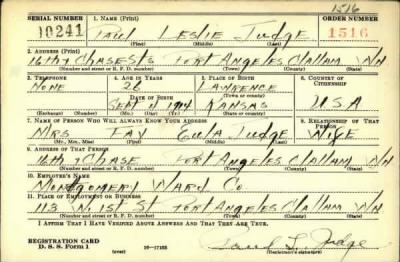 1516
SERIAL NUMBER 1. NAME (Print) ORDER NUMBER
10241 Paul Leslie Judge 1516
(First) (Middle) (Last)
2. ADDRESS (Print)
16th & Chase Sts Port Angeles Clallam Wn
(Number and street or R. F. D. number) (Town) (County) (State)
3. TELEPHONE 4. AGE IN YEARS 5. PLACE OF BIRTH 6. COUNTRY OF CITIZENSHIP
None 26 Lawrence
(Town or county)
DATE OF BIRTH
Sept 11 1914 Kansas USA
(Exchange) (Number) (Mo.) (Day) (Yr.) (State or country)
7. NAME OF PERSON WHO WILL ALWAYS KNOW YOUR ADDRESS 8. RELATIONSHIP OF THAT PERSON
Mrs Fay Eula Judge Wife
(Mr., Mrs., Miss) (First) (Middle) (Last)
9. ADDRESS OF THAT PERSON
16th & Chase Port Angeles Clallam Wn
(Number and street or R. F. D. number) (Town) (County) (State)
10. EMPLOYER'S NAME
Montgomery Ward Co
11. PLACE OF EMPLOYMENT OR BUSINESS
113 W. 1st St Port Angeles Clallam Wn
(Number and street or R. F. D. number) (Town) (County) (State)
I AFFIRM THAT I HAVE VERIFIED ABOVE ANSWERS AND THAT THEY ARE TRUE.
REGISTRATION CARD
D. S. S. Form 1 (over) 16—17105 Paul L. Judge
(Registrant's signature)